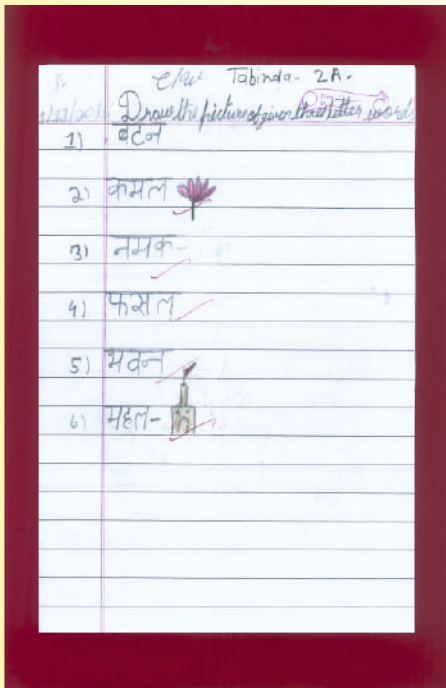 C/W Tabinda- 2A.
Draw the picture of given three letter words
1) बटन
2) कमल
3) नमक-
4) फसल
5) भवन
6) महल-